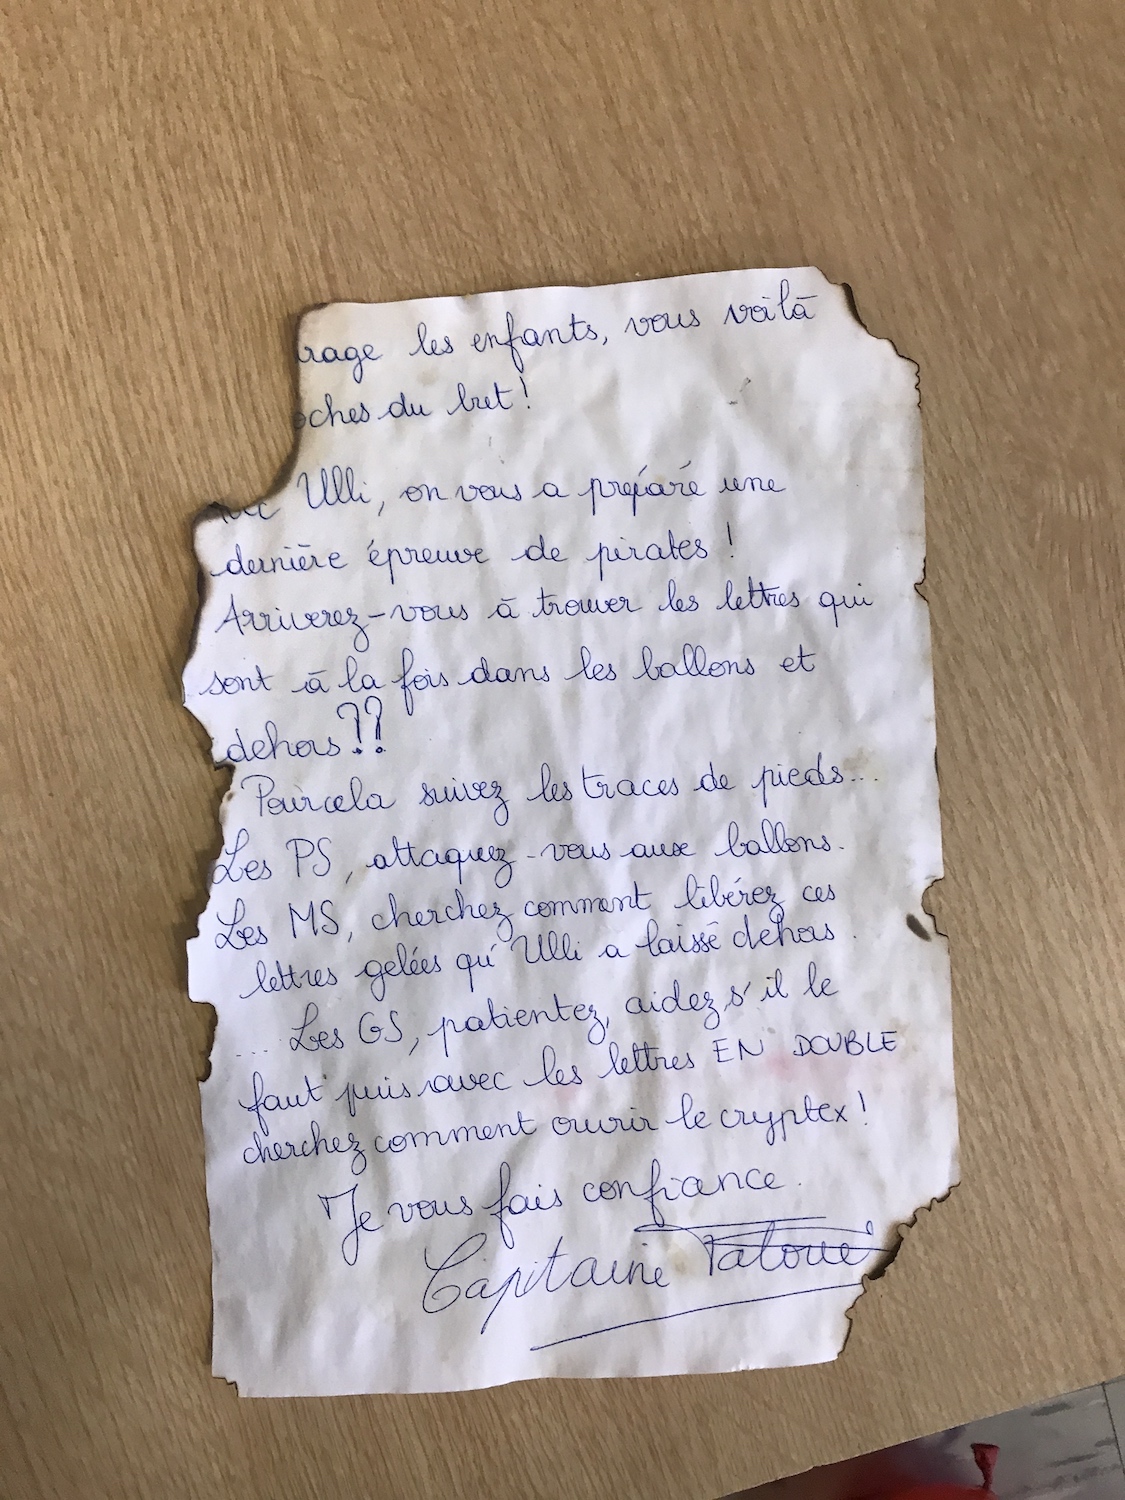 rage les enfants, vous voilà
oches du but!
Ulli, on vous a préparé une
dernière épreuve de pirates !
Arriverez-vous à trouver les lettres qui
sont à la fois dans les ballons et
dehors??
Pour cela suivez les traces de pieds...
Les PS, attaquez-vous aux ballons.
Les MS, cherchez comment libérez ces
lettres gelées qu'Ulli a laissé dehors.
... Les GS, patientez, aidez s'il le
faut puis avec les lettres EN DOUBLE
cherchez comment ouvrir le cryptex!
Je vous fais confiance.
Capitaine Patoue